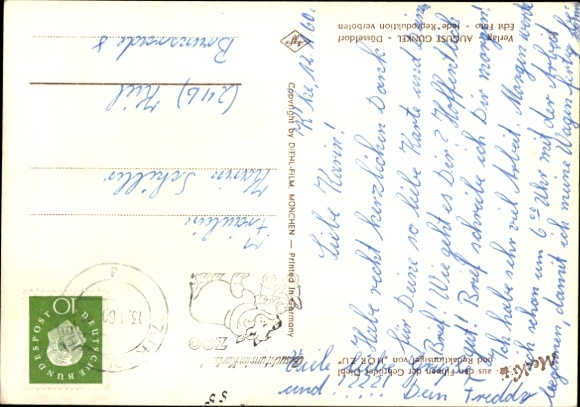 Mecki
aus den Filmen der Gebrüder Diehl
und Redaktionsigel von „HÖR ZU"
K'he 12.1.60.
Liebe Karin!
Habe recht herzlichen Dank
für Deine so liebe Karte und den
Brief! Wie geht es Dir? Hoffentlich
gut! Brief schreibe ich Dir morgen!
Ich habe sehr viel Arbeit. Morgen werde
ich schon um 6 Uhr mit der Arbeit
beginnen, damit ich meine Wagen fertig
und
Dein Freddy
Verlag AUGUST GUNKEL - Düsseldorf
Echt Foto - Jede Reproduktion verboten
Agfa
Copyright by DIEHL-FILM, MÜNCHEN — Printed in Germany
DEUTSCHE BUNDESPOST
10
ZOO
Fräulein
Karin Schiller
(24b) Kiel